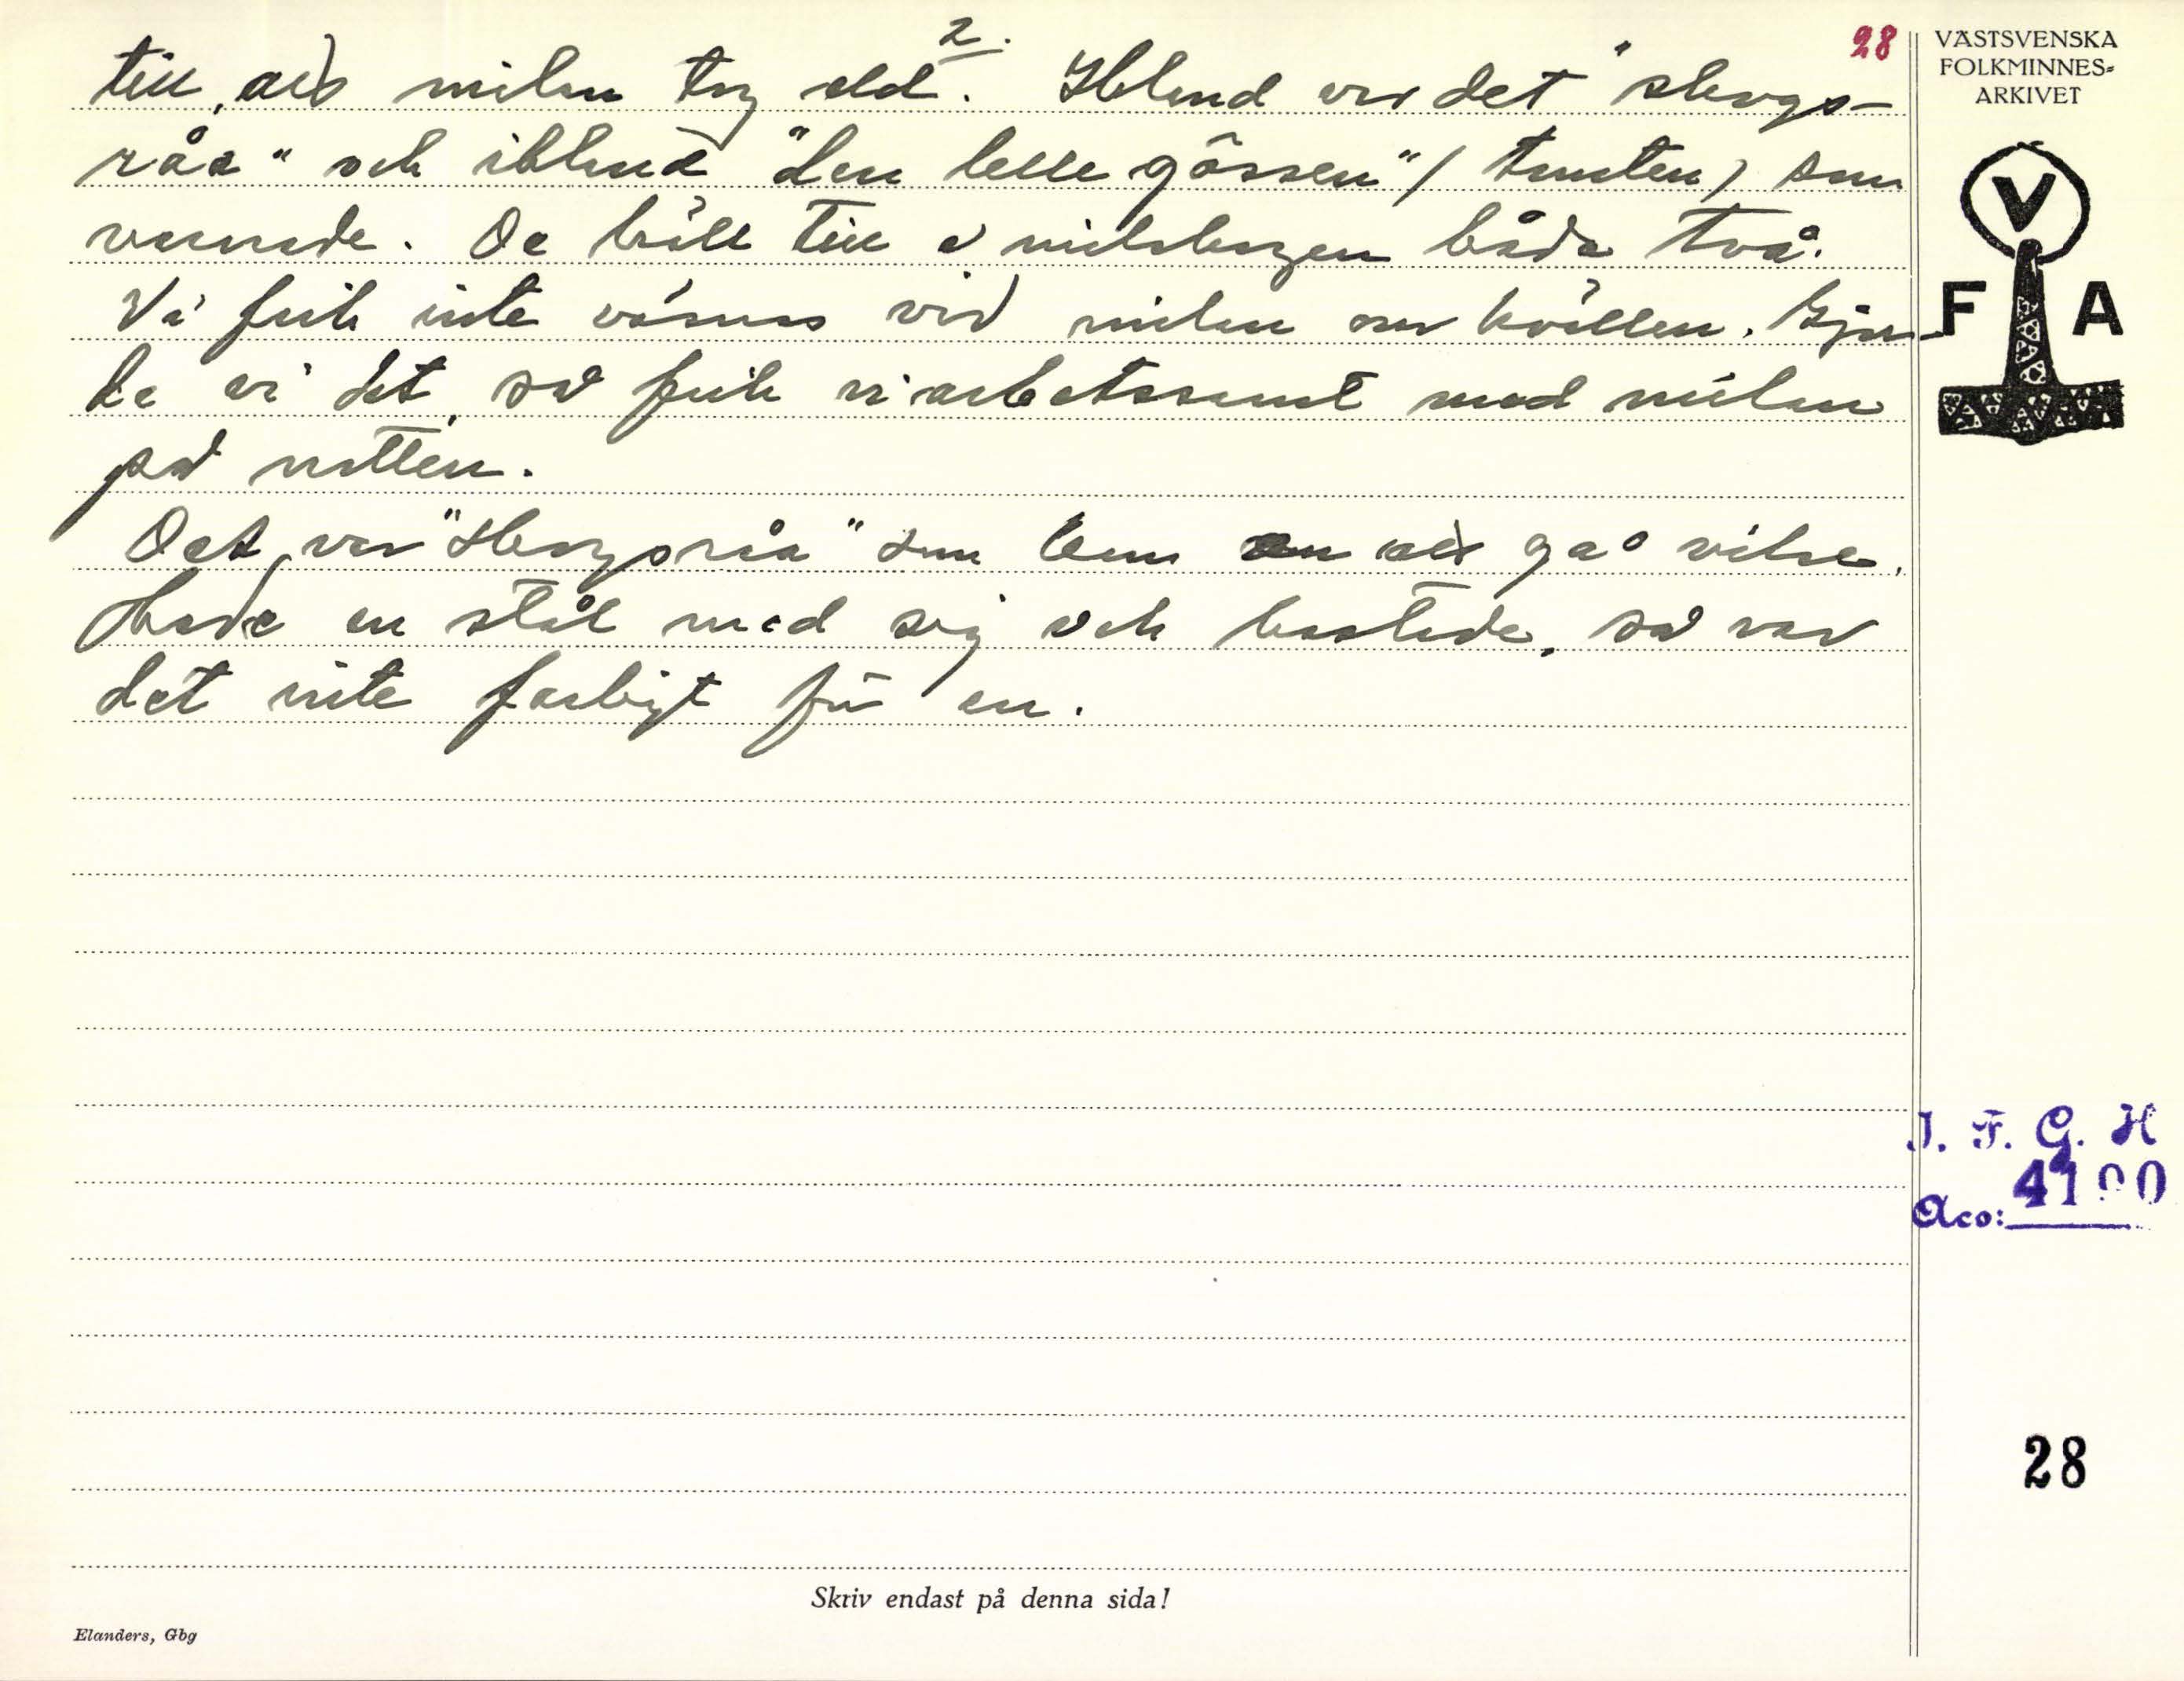 2.
28
till, att milan tog eld. Ibland var det "skogs-
råa" och ibland "den lelle gössen" (tomten) som
varnade. De höll till i milskogen båda två.
Vi fick inte våsnas vid milan om kvällen. Gjor-
de vi det, så fick vi arbetssamt med milan
på natten.
Det var "skogsråa" som kom en att gå vilse.
Hade en stål med sig och kastade, så var
det inte farligt för en.
VÄSTSVENSKA
FOLKMINNES-
ARKIVET
V
F A
I. F. G. H
4100
Acc:
28
Skriv endast på denna sida!
Elanders, Gbg